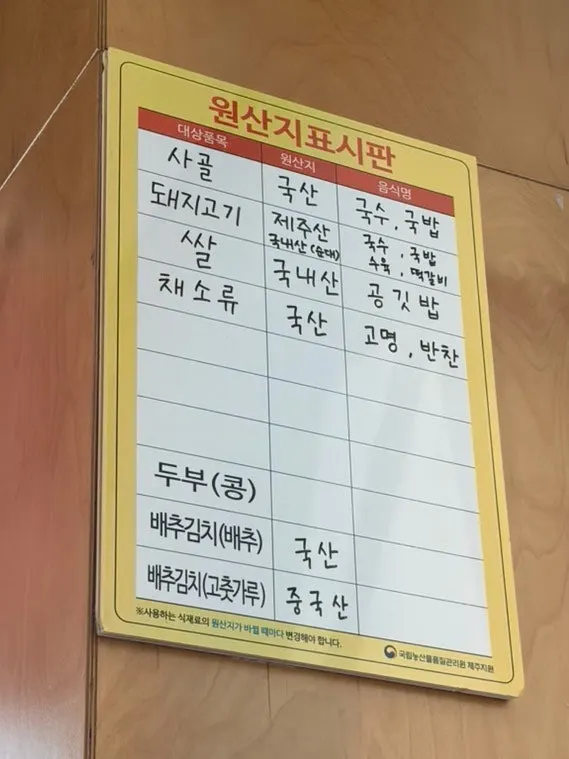 원산지표시판
대상품목 원산지 음식명
사골 국산 국수, 국밥
돼지고기 제주산 국내산(순대) 국수, 국밥 수육, 떡갈비
쌀 국내산 공깃밥
채소류 국산 고명, 반찬
두부(콩)
배추김치(배추) 국산
배추김치(고춧가루) 중국산
※사용하는 식재료의 원산지가 바뀔 때마다 변경해야 합니다.
국립농산물품질관리원 제주지원